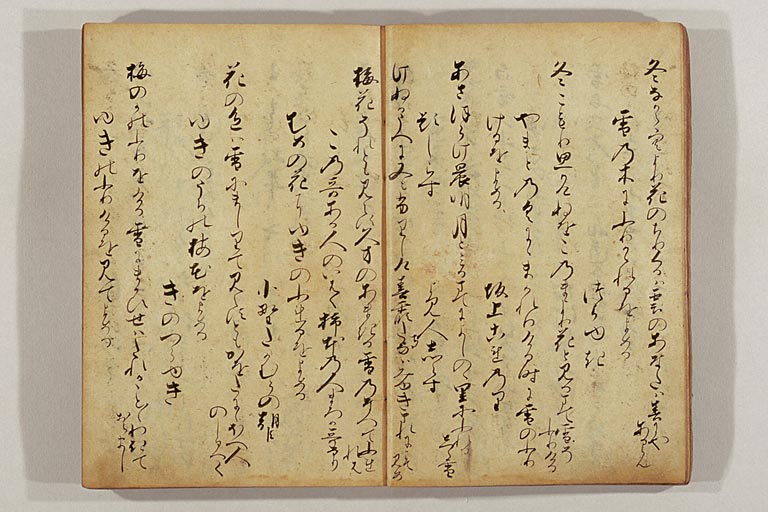 冬なから空より花のちりくるは雲のあなたは春にやあるらん
雪乃木にふりかゝれるをよめる
つらゆき
冬こもり思かけぬをこ乃まより花と見るまて雪そふりける
やまと乃くにゝまかれりける時に雪のふり
けるをよめる
坂上これ乃り
あさほらけ晨明月とみるまてによしのゝ里にふれるしら雪
題しらす　よみ人しらす
けぬかうへに又もふりしけ春霞たちなはみゆきまれにこそ見め
梅花それとも見えす久方のあまきる雪乃なへてふれゝは
こ乃哥ある人のいはく柿本乃人まろか哥なり
むめの花にゆきのふれるをよめる
小野たかむらの朝臣
花の色は雪にましりて見えすともかをたにゝほへ人のしるへく
ゆきのうちの梅花をよめる
きのつらゆき
梅のかのふりをける雪にまかひせはたれかことゝわきておらまし
ゆきのふりけるを見てよめる